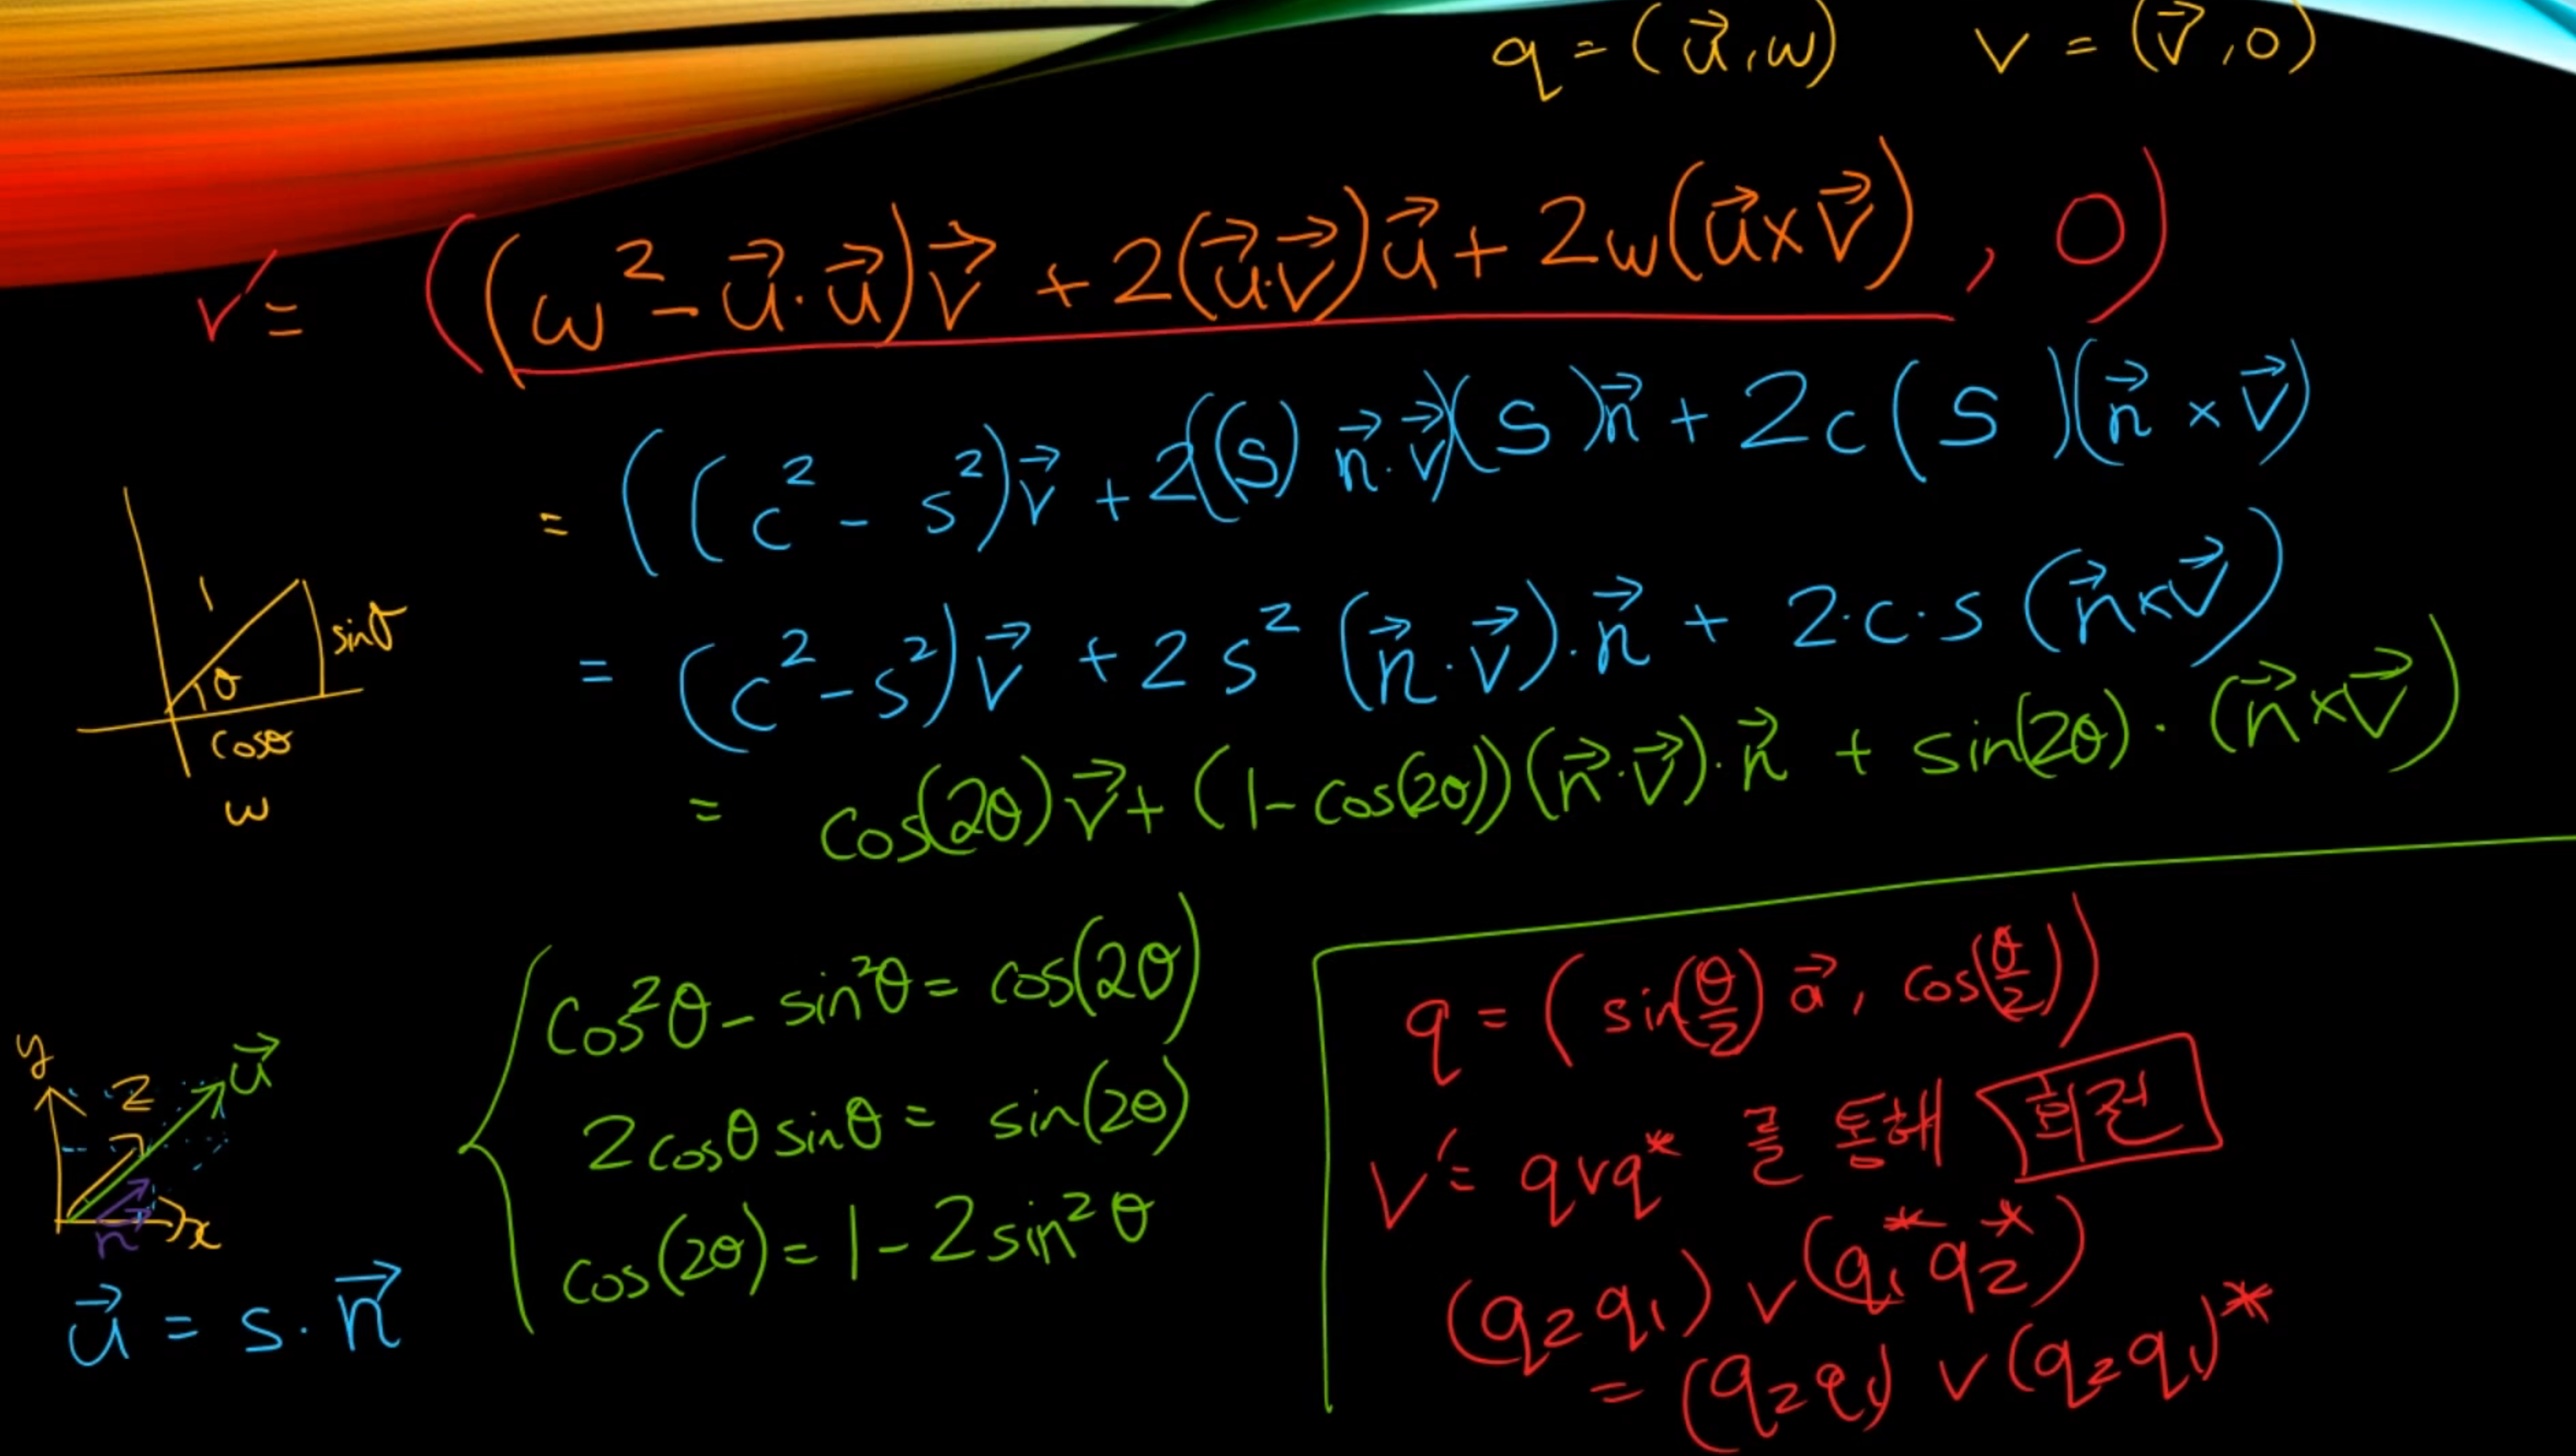 q = (u⃗, w)   v = (v⃗, 0)
v' = ((w² - u⃗·u⃗)v⃗ + 2(u⃗·v⃗)u⃗ + 2w(u⃗×v⃗), 0)
= ((c² - s²)v⃗ + 2((s) n⃗·v⃗)(s)n⃗ + 2c(s)(n⃗ × v⃗)
= (c² - s²)v⃗ + 2s²(n⃗·v⃗)·n⃗ + 2·c·s(n⃗×v⃗)
= cos(2θ)v⃗ + (1 - cos(2θ))(n⃗·v⃗)·n⃗ + sin(2θ)·(n⃗×v⃗)
1
sinθ
θ
cosθ
w
y
z
u⃗
n
x
u⃗ = s·n⃗
cos²θ - sin²θ = cos(2θ)
2cosθ sinθ = sin(2θ)
cos(2θ) = 1 - 2sin²θ
q = (sin(θ/2) a⃗, cos(θ/2))
v' = qvq* 를 통해 회전
(q₂q₁) v (q₁* q₂*)
= (q₂q₁) v (q₂q₁)*